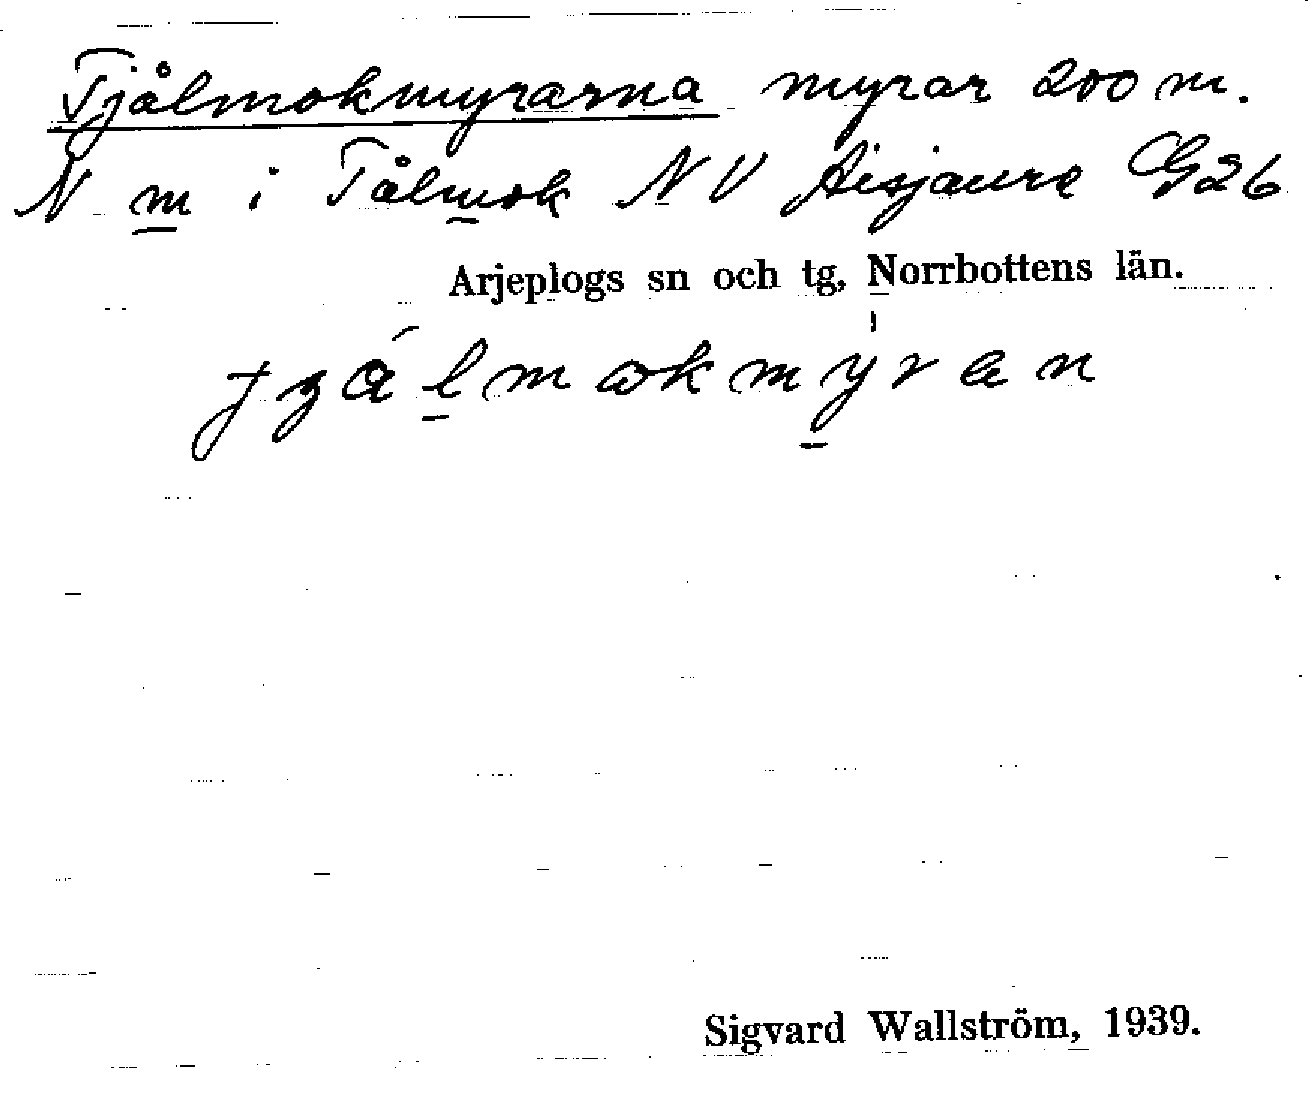 Tjålmokmyrarna myrar 200 m.
N m i Tålmok NV Aisjaure G26
Arjeplogs sn och tg, Norrbottens län.
Sigvard Wallström, 1939.